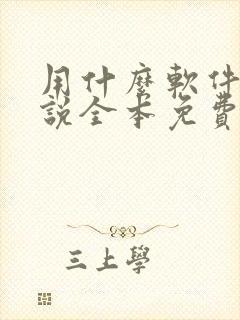 用什麼軟件
說全本免費
三上學